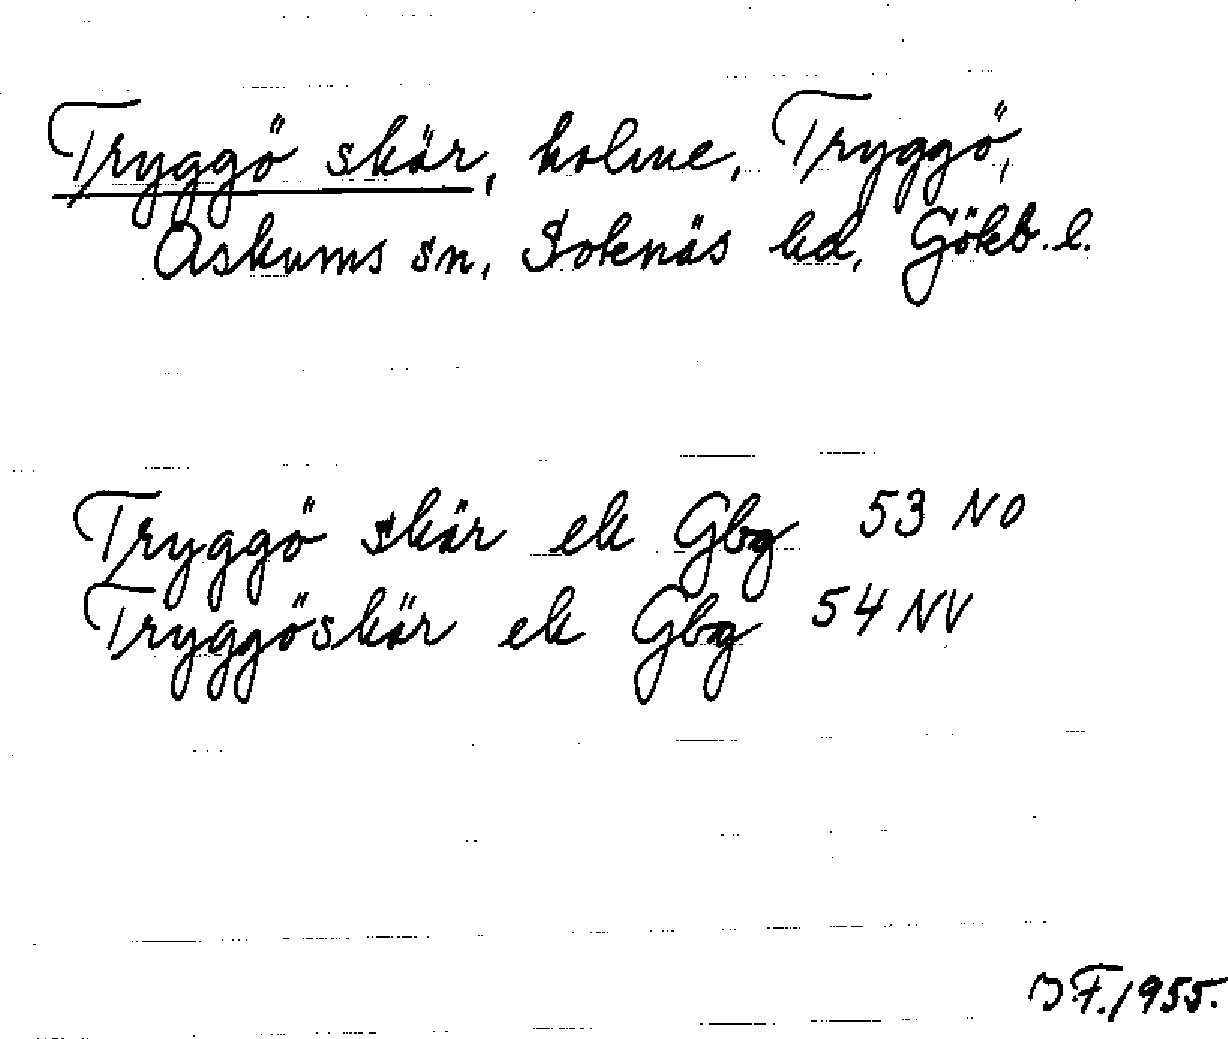 Tryggö skär, holme, Tryggö,
Askums sn, Sotenäs hd, Göteb. l.
Tryggö skär ek Gbg 53 NO
Tryggöskär ek Gbg 54 NV
F. 1955.